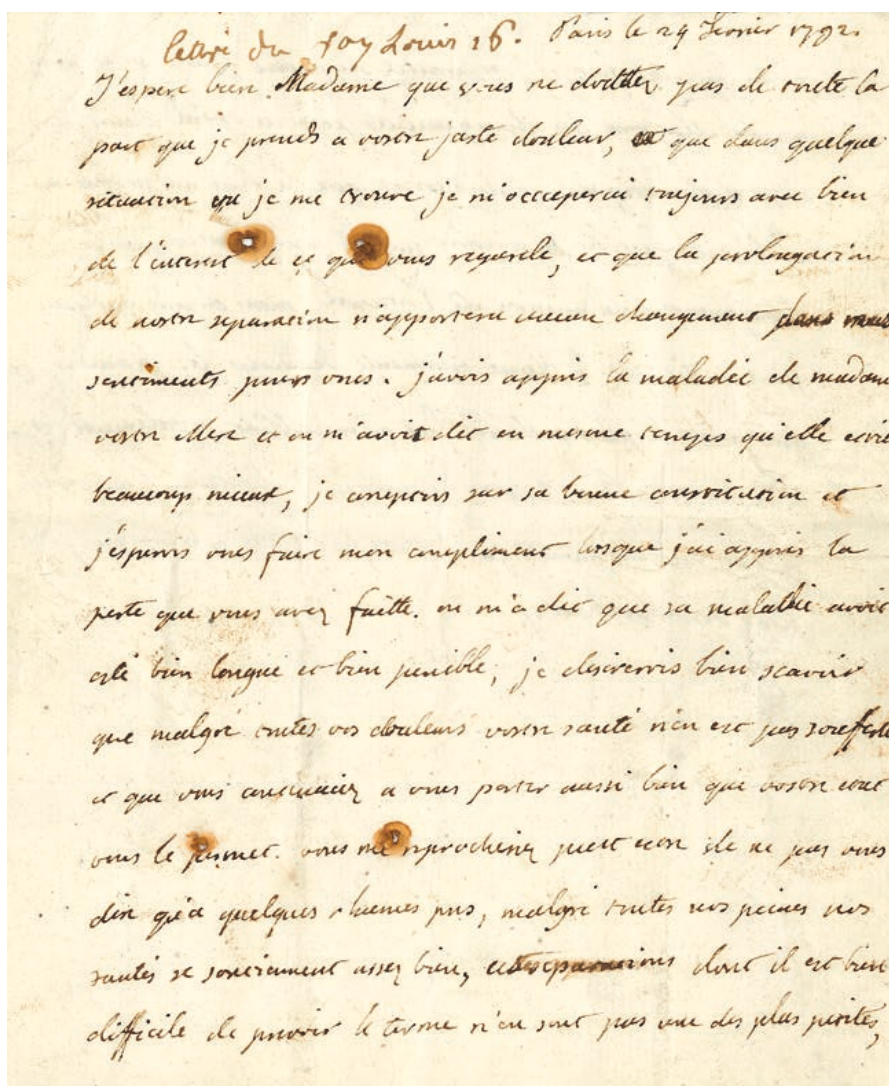 lettre du roy Louis 16. Paris le 24 fevrier 1792.
J'espere bien Madame que vous ne douttez pas de toute la
part que je prends a vostre juste douleur, que dans quelque
situation que je me trouve je m'occcuperai toujours avec bien
de l'interest de ce qui vous regarde, et que la prolongation
de nostre separation n'apportera aucun changement dans mes
sentiments pour vous. j'avois appris la maladie de madame
vostre Mere et on m'avoit dit en mesme temps qu'elle estoit
beaucoup mieux, je comptois sur sa bonne constitution et
j'esperois vous faire mon compliment lorsque j'ai appris la
perte que vous avez faitte. on m'a dit que sa maladie avoit
esté bien longue et bien penible, je desirerois bien scavoir
que malgré toutes vos douleurs vostre santé n'en est pas soufferte
et que vous continuiez a vous porter aussi bien que vostre etat
vous le permet. vous me reprocheriez peut etre de ne pas vous
dire qu'a quelques rhumes pres, malgré toutes nos peines nos
santés se soutiennent assez bien, cette separations dont il est bien
difficile de prevoir le terme n'en sont pas une des plus petites,